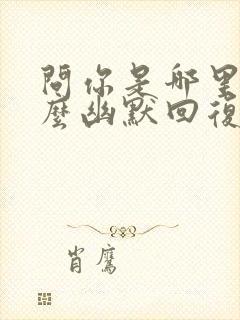 問你是哪里
麼幽默回復
肖鷹